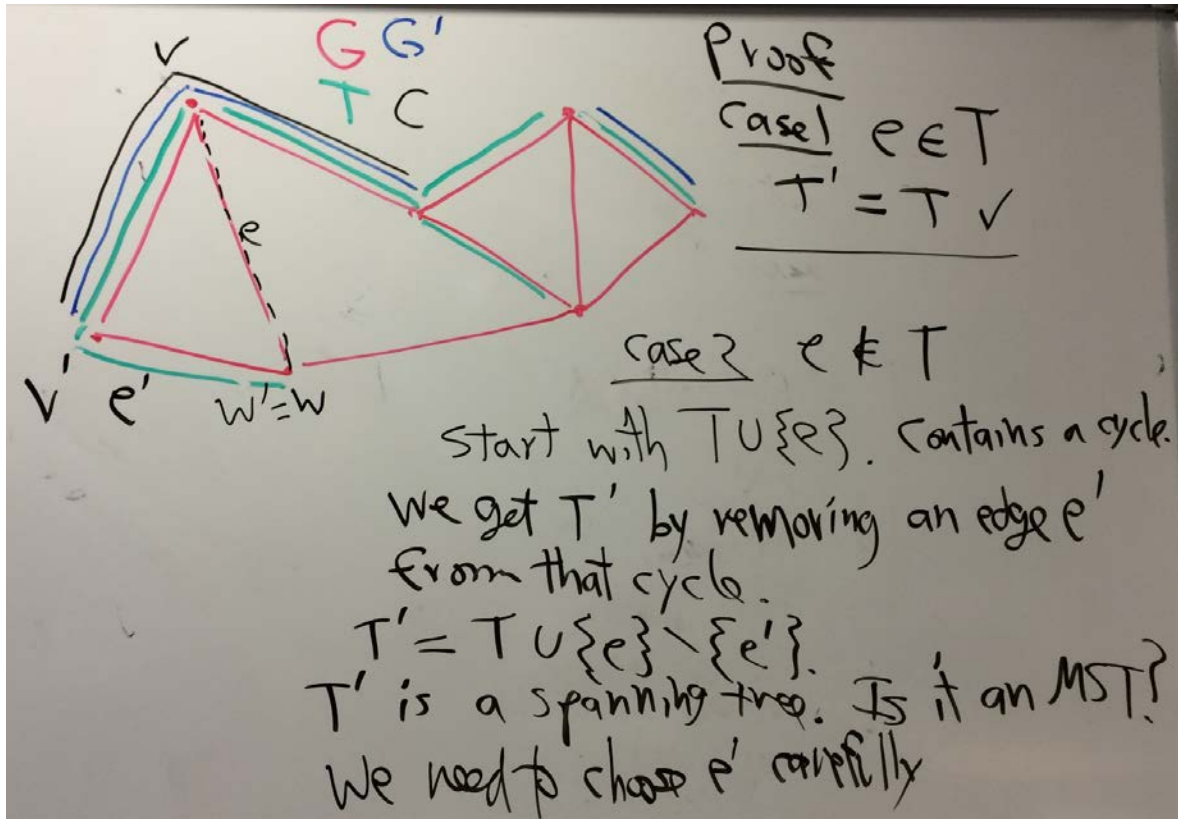 V
G G'
T C
e
V' e' w'=w
Proof
Case 1 e ∈ T
T' = T ✓
Case 2 e ∉ T
Start with T ∪ {e}. Contains a cycle.
We get T' by removing an edge e'
from that cycle.
T' = T ∪ {e} \ {e'}.
T' is a spanning tree. Is it an MST?
We need to choose e' carefully